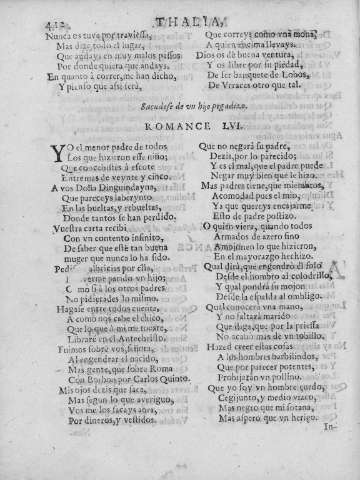 412 THALIA,
Nunca es tuvo por traviessa,
Mas dize todo el lugar,
Que andays en muy malos passos
Por donde quiera que andays.
En quanto à correr, me han dicho,
Y pienso que assi serà,
Que correys como vna mona,
A quien encima llevays.
Dios os dè buena ventura,
Y os libre por su piedad,
De ser banquete de Lobos,
De Verracos otro que tal.
Sacudese de vn hijo pegadizo.
ROMANCE LVI.
YO el menor padre de todos
Los que hizieron esse niño,
Que concebistes à escote
Entre mas de veynte y cinco.
A vos Doña Dinguindayna,
Que pareceys laberynto,
En las bueltas, y rebueltas,
Donde tantos se han perdido.
Vuestra carta recibi
Con vn contento infinito,
De saber que estè tan buena
muger que nunca lo ha sido.
albricias por ello,
parida vn hijo;
los otros padres
No pidierades lo mismo.
Hagase entre todos cuenta,
A como nos cabe el chico,
Que lo que à mi me tocare,
Librarè en el Antechristo.
Fuimos sobre vos, señora,
Al engendrar el nacido,
Mas gente, que sobre Roma
Con Borbon, por Carlos Quinto.
Mis ojos dezis que saca,
Mas segun lo que averiguo,
Vos me los sacays aora,
Por dineros, y vestidos.
Que no negarà su padre,
Dezis, por lo parecido;
Y es el mal, que el padre puede
Negar muy bien que le hizo.
Mas padres tiene, que
Acomodad pues el mio,
Ya que quereys encaxarme
Esto de padre postizo.
O quien viera, quando todos
Armados de azero fino
Amohinen lo que hizieron,
En el mayorazgo hechizo.
Qual dirà, que engendrò el solo
Desde el hombro al colodrillo,
Y qual pondrà su mojon
Desde la espalda al ombligo.
Qual conocerà vna mano,
Y no faltarà marido
Que diga, que por la priessa
No acabò mas de vn tobillo.
Hazed creer essas cosas
A los hombres barbilindos,
Que por parecer potentes,
Prohijaràn vn pollino.
Que yo soy vn hombre gordo,
Cegijunto, y medio vizco,
Mas negro que mi sotana,
Mas aspero que vn herigo.
In-